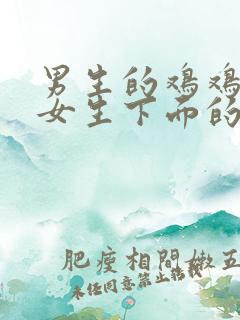 男生的鸡鸡
女生下面的
肥瘦相间嫩五
未任同意禁止转载